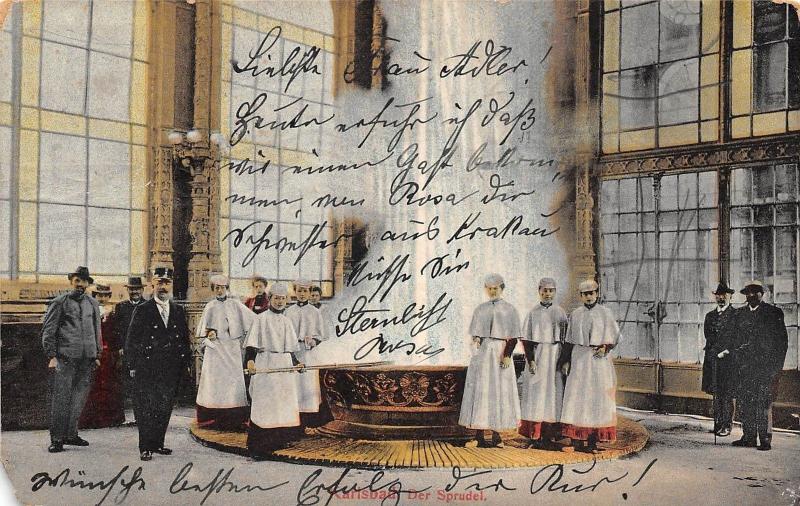 Liebste Frau Adler!
Heute erfuhr ich daß
wir einen Gast bekom
men, nen Rosa die
Schwester aus Krakau
Küsse Sie
Sternlicht
Rosa
Wünsche besten Erfolg der Kur!
Karlsbad. Der Sprudel.